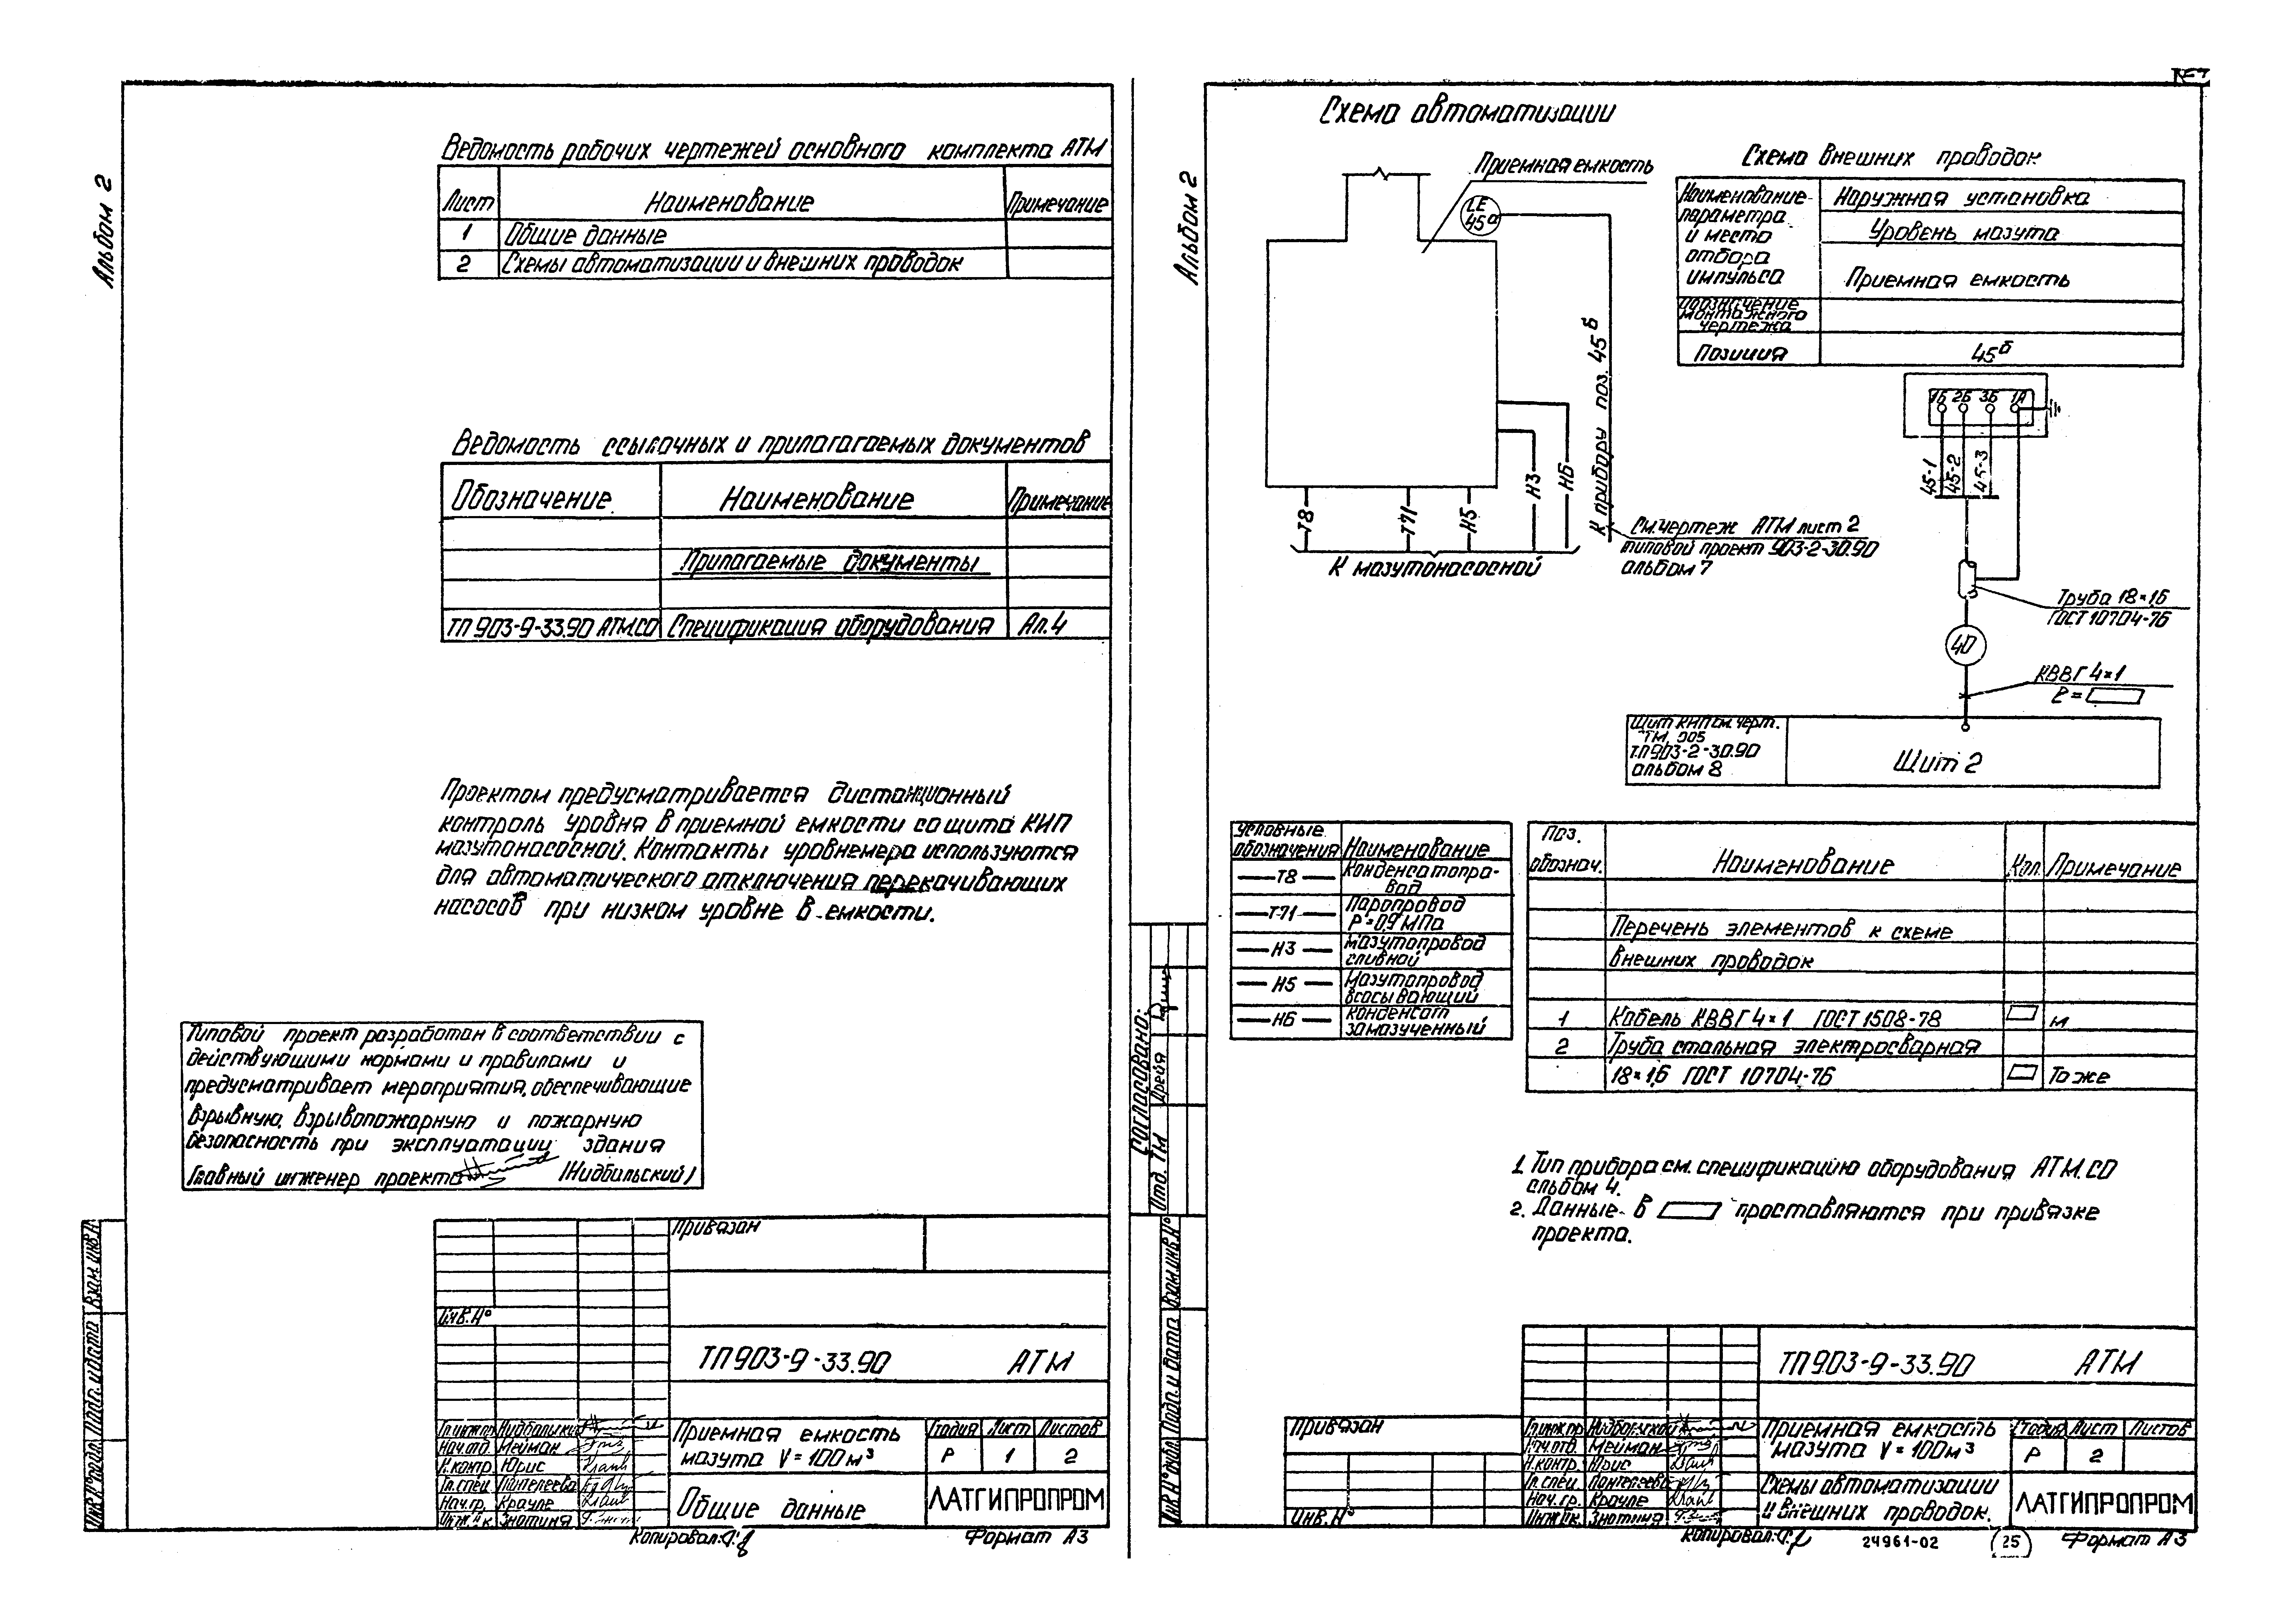 Альбом 2
Ведомость рабочих чертежей основного комплекта АТМ
Лист Наименование Примечание
1 Общие данные
2 Схемы автоматизации и внешних проводок
Ведомость ссылочных и прилагагаемых документов
Обозначение Наименование Примечание
Прилагаемые документы
ТП 903-9-33.90 АТМ.СО Спецификация оборудования Ал.4
Проектом предусматривается дистанционный
контроль уровня в приемной емкости со щита КИП
мазутонасосной. Контакты уровнемера используются
для автоматического отключения перекачивающих
насосов при низком уровне в емкости.
Типовой проект разработан в соответствии с
действующими нормами и правилами и
предусматривает мероприятия, обеспечивающие
взрывную, взрывопожарную и пожарную
безопасность при эксплуатации здания
Главный инженер проекта (Нидбальский)
Привязан
Инв.№
ТП 903-9-33.90 АТМ
Гл.инж.пр. Нидбальский
Нач.отд. Мейман
Н.контр. Юрис
Гл.спец. Пантелеева
Нач.гр. Крауле
Инж.IIк. Знотиня
Приемная емкость
мазута V=100м³
Стадия Лист Листов
Р 1 2
Общие данные
ЛАТГИПРОПРОМ
Копировал: Формат А3
Инв.№ подл. Подп. и дата Взам.инв.№
Альбом 2
Схема автоматизации
Приемная емкость
LE
45а
К прибору поз. 45б
Т8
Т71
Н5
Н3
Н6
К мазутонасосной
См.чертеж АТМ лист 2
типовой проект 903-2-30.90
альбом 7
Схема внешних проводок
Наименование
параметра
и место
отбора
импульса
Наружная установка
Уровень мазута
Приемная емкость
Обозначение
монтажного
чертежа
Позиция 45б
1Б 2Б 3Б 1А
45-1
45-2
45-3
Труба 18×1,6
ГОСТ 10704-76
40
КВВГ 4×1
ℓ=
Щит КИП см. черт.
ТМ. 005
Т.П 903-2-30.90
альбом 8
Щит 2
Условные
обозначения Наименование
Т8 Конденсатопро-
вод
Т71 Паропровод
Р=0,9 МПа
Н3 мазутопровод
сливной
Н5 Мазутопровод
всасывающий
Н6 конденсат
замазученный
Поз.
обознач. Наименование Кол. Примечание
Перечень элементов к схеме
внешних проводок
1 Кабель КВВГ 4×1 ГОСТ 1508-78 м
2 Труба стальная электросварная
18×1,6 ГОСТ 10704-76 То же
1. Тип прибора см. спецификацию оборудования АТМ.СО
альбом 4.
2. Данные в проставляются при привязке
проекта.
Согласовано:
Отд. ТМ Дрейя
Инв.№ подл. Подп. и дата Взам.инв.№
Привязан
Инв.№
ТП 903-9-33.90 АТМ
Гл.инж.пр. Нидбальский
Нач.отд. Мейман
Н.контр. Юрис
Гл.спец. Пантелеева
Нач.гр. Крауле
Инж.IIк. Знотиня
Приемная емкость
мазута V=100м³
Стадия Лист Листов
Р 2
Схемы автоматизации
и внешних проводок.
ЛАТГИПРОПРОМ
Копировал: 24961-02 25 Формат А3